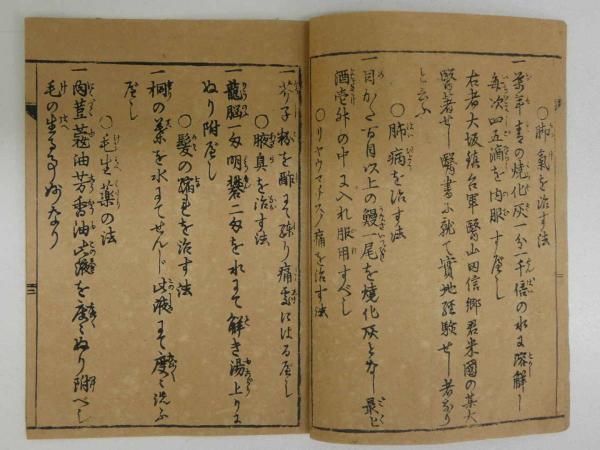 ○肺氣を治す法
一萬年青の焼化灰一分一千倍の水に溶解し
毎次四五滴を内服す屋し
右者大坂鎮台軍醫山田信郷君米國の某大
醫著せし醫書に就て實地経験せし者なり
と云ふ
○肺病を治す法
一目かた百目以上の鰻一尾を焼化灰となし最上
酒壱升の中に入れ服用すべし
○リヤウマチス痛を治す法
一芥子粉を酢にて練り痛處にはる屋し
○腋臭を治す法
一龍脳一匁明礬二匁を水にて解き湯上りに
ぬり附屋し
○髪の癖毛を治す法
一桐の葉を水にてせんじ此液にて度々洗ふ
屋し
○毛生薬の法
一肉荳蔲油芳香油此液を度々ぬり附べし
毛の生る事妙なり
三